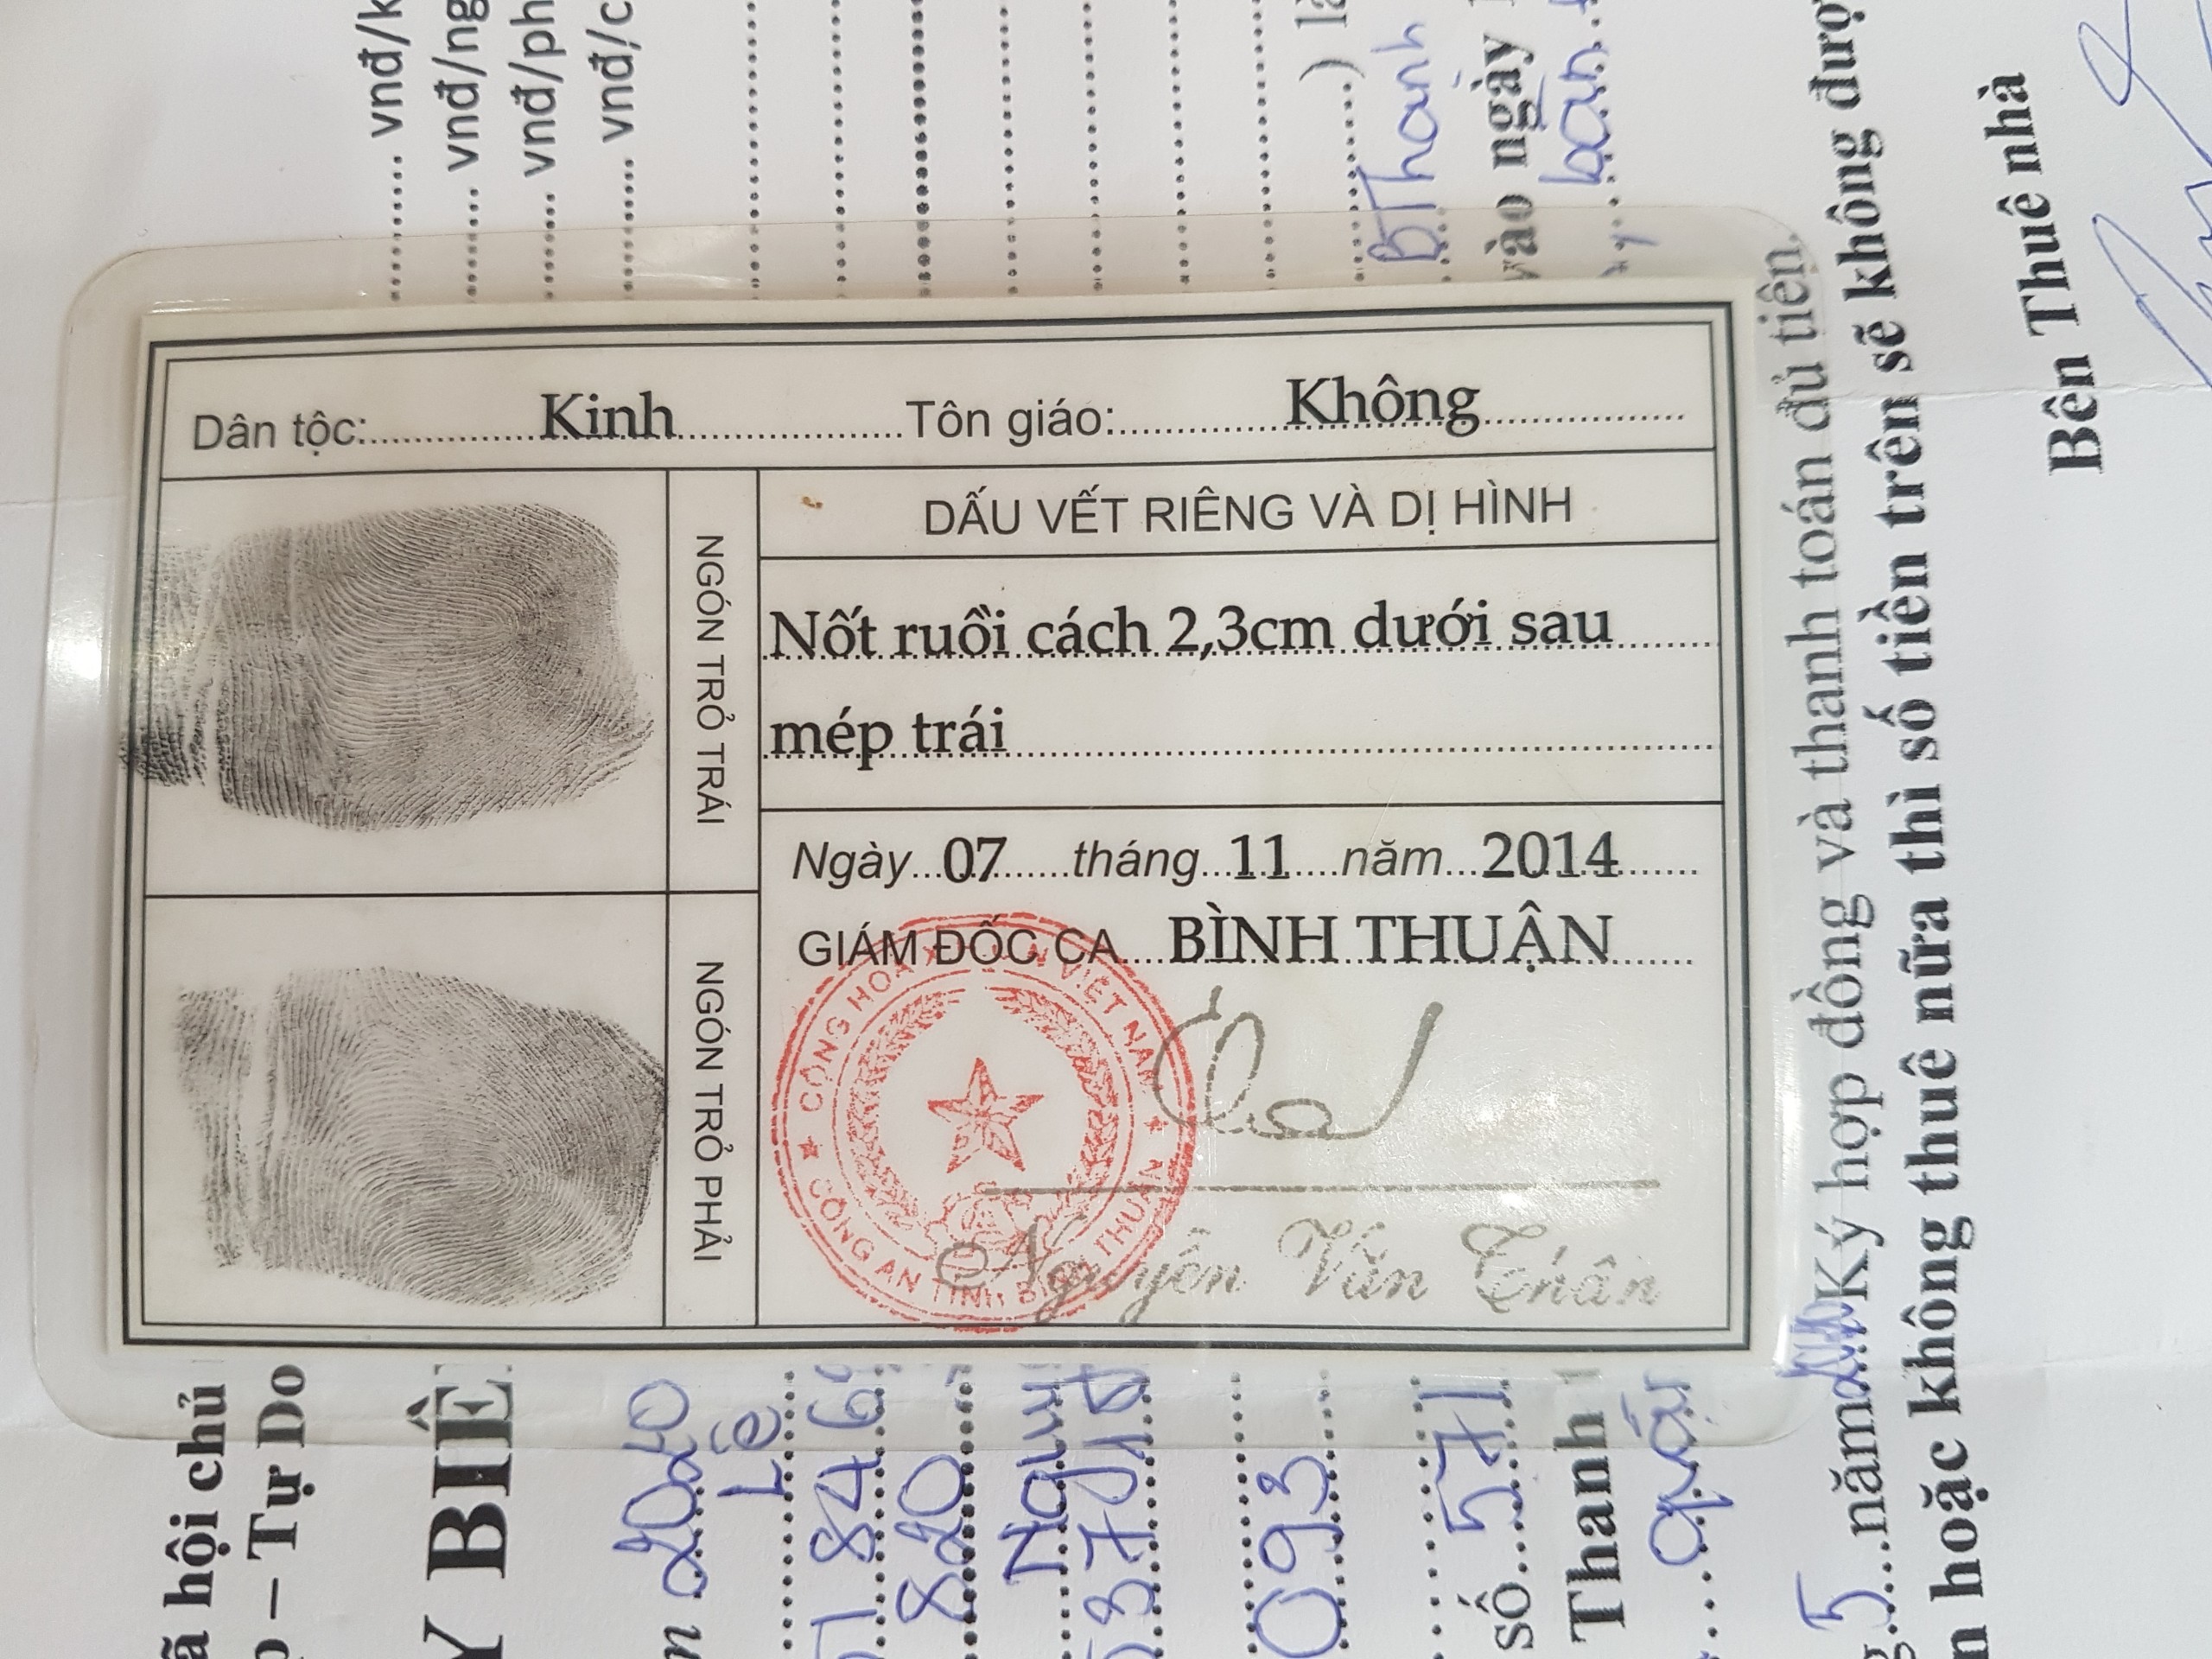 Dân tộc: Kinh Tôn giáo: Không
NGÓN TRỎ TRÁI
DẤU VẾT RIÊNG VÀ DỊ HÌNH
Nốt ruồi cách 2,3cm dưới sau
mép trái
Ngày 07 tháng 11 năm 2014
GIÁM ĐỐC CA BÌNH THUẬN
NGÓN TRỎ PHẢI
Nguyễn Văn Thân
CỘNG HOÀ VIỆT NAM
CÔNG AN TỈNH BÌNH THUẬN
vnđ/k
vnđ/ng
vnđ/ph
vnđ/c
) là
BThanh
vào ngày
bán
Ký hợp đồng và thanh toán đủ tiền.
hoặc không thuê nữa thì số tiền trên sẽ không đượ
Bên Thuê nhà
hội chủ
– Tự Do
Y BIÊ
2020
Lê
1846
820
Nguy
537
093
số 571
Thanh
quá
5 năm